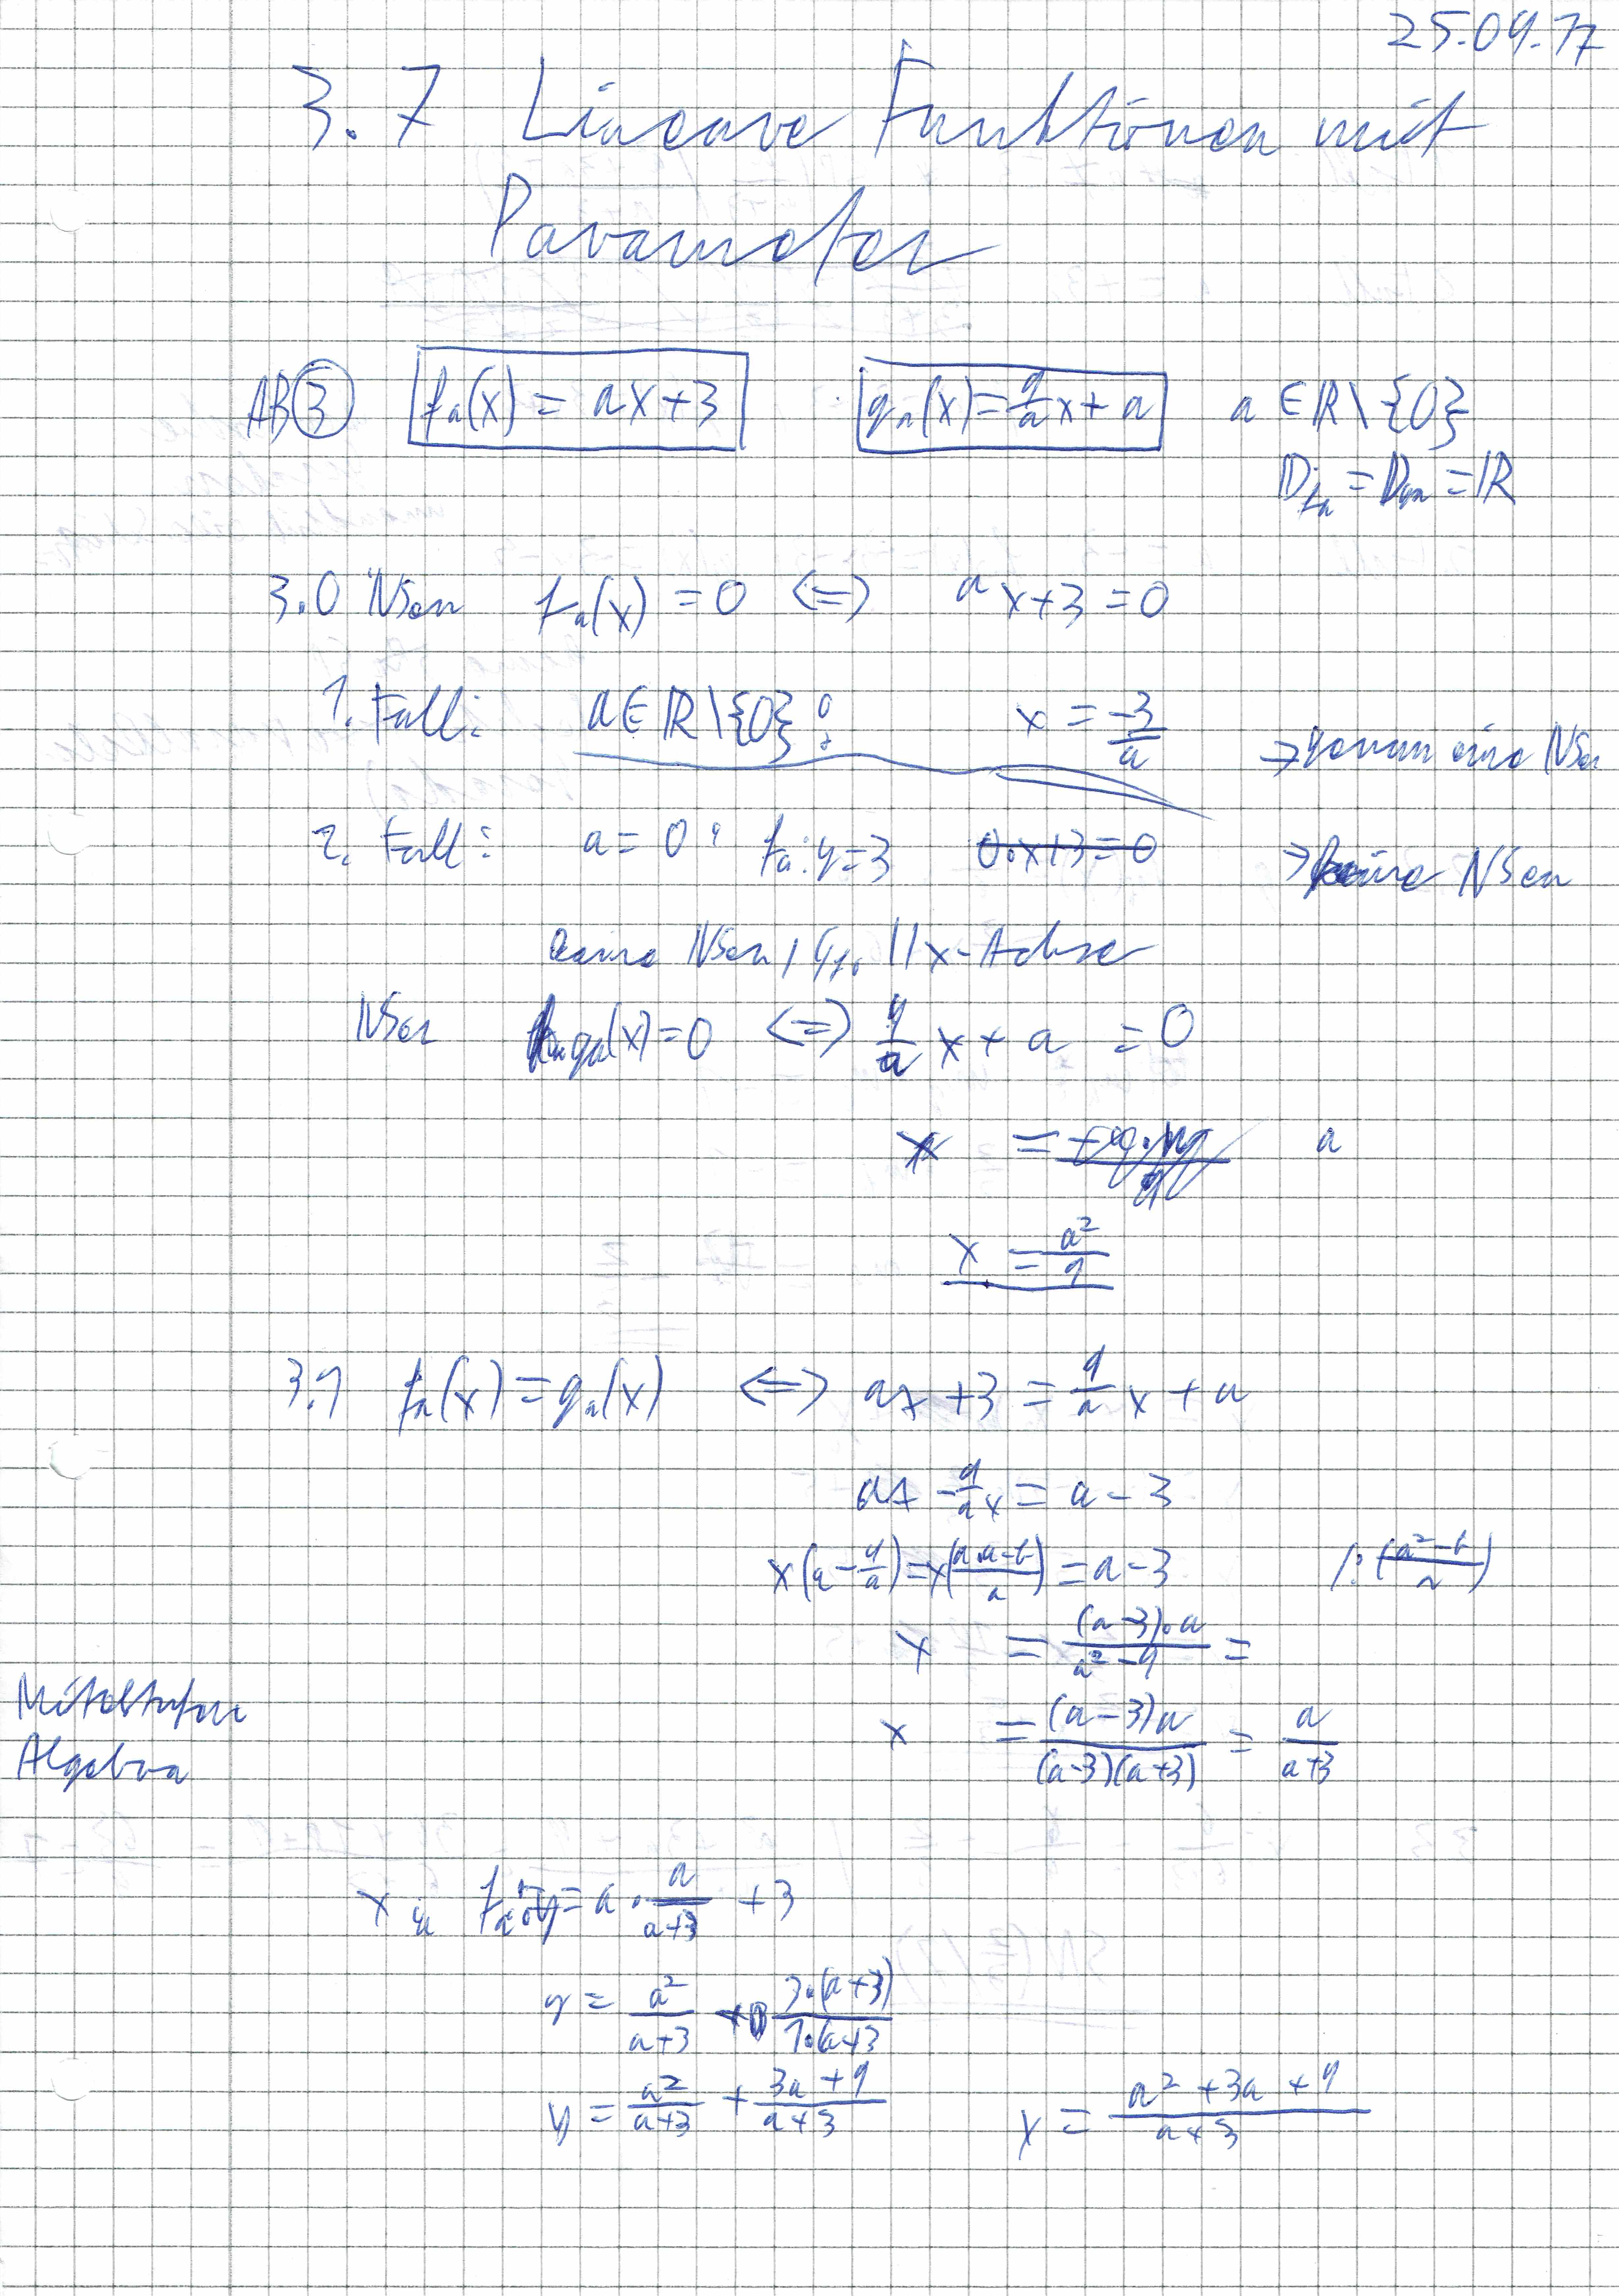 25.09.17
3.7 Lineare Funktionen mit
Parameter
AB ③ fa(x) = ax+3 ga(x) = 9/a x + a a ∈ ℝ\{0}
Dfa = Dga = ℝ
3.0 NSen fa(x) = 0 <=> ax+3 = 0
1. Fall: a ∈ ℝ\{0}: x = -3/a → genau eine NSen
2. Fall: a = 0: fa: y=3 0·x+3=0 → keine NSen
keine NSen, Gf0 || x-Achse
NSen ga(x) = 0 <=> 9/a x + a = 0
x = a
x = a²/9
3.1 fa(x) = ga(x) <=> ax + 3 = 9/a x + a
ax - 9/a x = a - 3
x(a - 9/a) = x((a·a-6)/a) = a - 3 /: ((a²-6)/a)
x = (a-3)·a/(a²-9) =
Mittelstufen
Algebra
x = (a-3)a/((a-3)(a+3)) = a/(a+3)
x in fa: y = a · a/(a+3) + 3
y = a²/(a+3) + 3·(a+3)/(1·(a+3)
y = a²/(a+3) + (3a+9)/(a+3) y = (a²+3a+9)/(a+3)